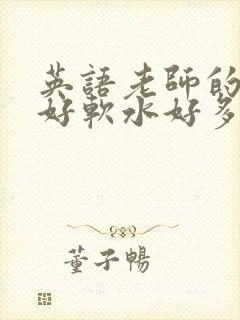 英語老師的
好軟水好多
董子暢